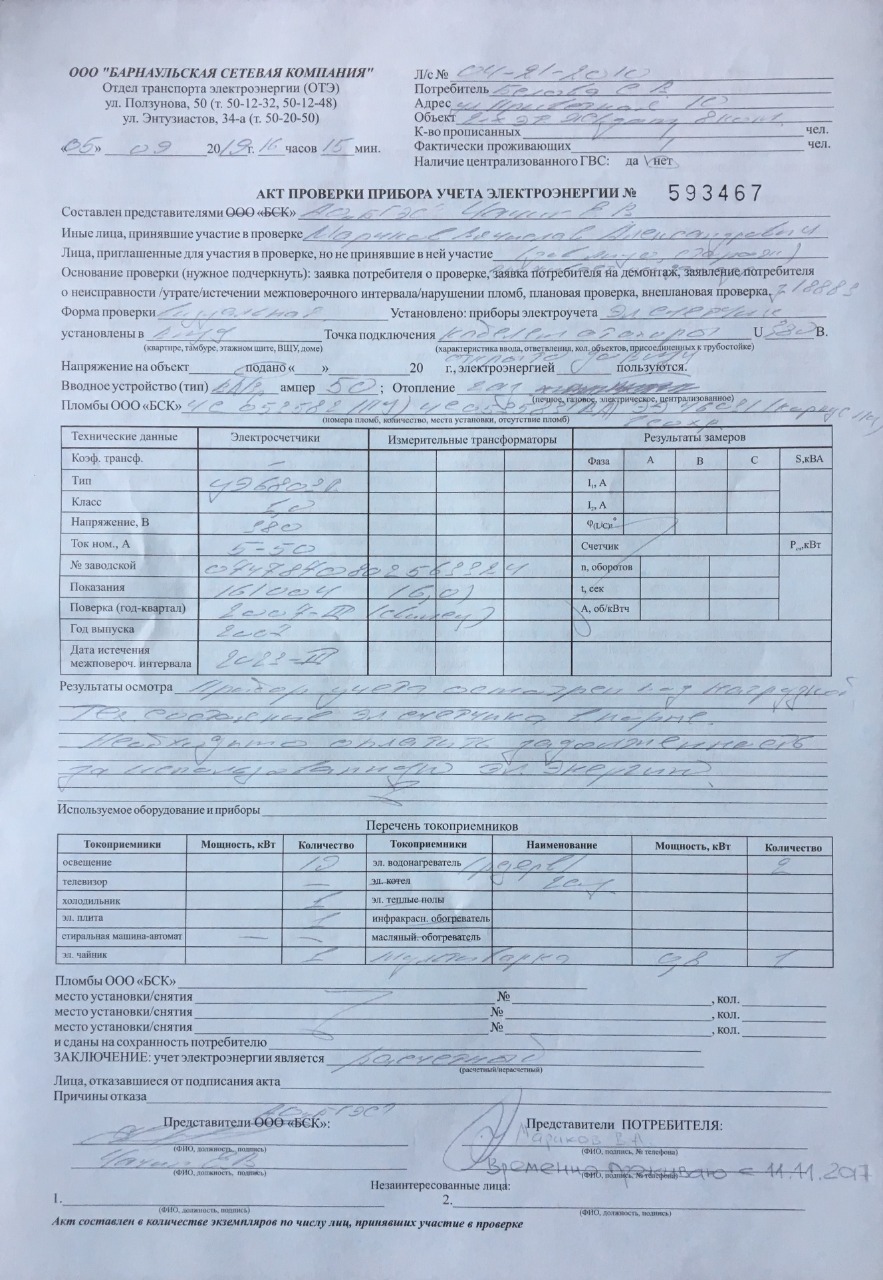 ООО "БАРНАУЛЬСКАЯ СЕТЕВАЯ КОМПАНИЯ"
Отдел транспорта электроэнергии (ОТЭ)
ул. Ползунова, 50 (т. 50-12-32, 50-12-48)
ул. Энтузиастов, 34-а (т. 50-20-50)
«05» 09 2019г. 16 часов 15 мин.
Л/с № 04-21-2010
Потребитель Белова С В
Адрес 10
Объект
К-во прописанных / чел.
Фактически проживающих 1 чел.
Наличие централизованного ГВС: да \ нет
АКТ ПРОВЕРКИ ПРИБОРА УЧЕТА ЭЛЕКТРОЭНЕРГИИ № 593467
Составлен представителями ООО «БСК»
Иные лица, принявшие участие в проверке Мариков Вячеслав Александрович
Лица, приглашенные для участия в проверке, но не принявшие в ней участие
Основание проверки (нужное подчеркнуть): заявка потребителя о проверке, заявка потребителя на демонтаж, заявление потребителя
о неисправности /утрате/истечении межповерочного интервала/нарушении пломб, плановая проверка, внеплановая проверка, 218883
Форма проверки Установлено: приборы электроучета эл счетчик
установлены в Точка подключения кабелем от опоры U 380 В.
(квартире, тамбуре, этажном щите, ВЩУ, доме) (характеристика ввода, ответвления, кол. объектов, присоединенных к трубостойке)
Напряжение на объект подано « » 20 г., электроэнергией пользуются.
Вводное устройство (тип) ампер 50 ; Отопление газ
(печное, газовое, электрическое, централизованное)
Пломбы ООО «БСК»
(номера пломб, количество, места установки, отсутствие пломб)
Технические данные Электросчетчики Измерительные трансформаторы Результаты замеров
Коэф. трансф. — Фаза А В С S,кВА
Тип ЦЭ6803В I₁, А
Класс 2,0 I₂, А
Напряжение, В 380 φ(U/C)°
Ток ном., А 5-50 Счетчик Рсч,кВт
№ заводской n, оборотов
Показания 161004 (6,0) t, сек
Поверка (год-квартал) 2007-III А, об/кВтч
Год выпуска
Дата истечения
межповероч. интервала 2023-III
Результаты осмотра Прибор учета осмотрен под нагрузкой
Тех состояние эл счетчика в норме.
Необходимо оплатить задолженность
за использованную эл энергию
Используемое оборудование и приборы
Перечень токоприемников
Токоприемники Мощность, кВт Количество Токоприемники Наименование Мощность, кВт Количество
освещение 10 эл. водонагреватель (резерв) 2
телевизор — эл. котел газ
холодильник 1 эл. теплые полы
эл. плита 1 инфракрасн. обогреватель
стиральная машина-автомат — — масляный. обогреватель
эл. чайник 1 мультиварка 1
Пломбы ООО «БСК»
место установки/снятия № , кол.
место установки/снятия № , кол.
место установки/снятия № , кол.
и сданы на сохранность потребителю
ЗАКЛЮЧЕНИЕ: учет электроэнергии является расчетный
(расчетный/нерасчетный)
Лица, отказавшиеся от подписания акта
Причины отказа
Представители ООО «БСК»: Представители ПОТРЕБИТЕЛЯ:
Мариков В.А.
(ФИО, должность, подпись) (ФИО, подпись, № телефона)
Временно проживаю с 11.11.2017
(ФИО, должность, подпись) (ФИО, подпись, № телефона)
Незаинтересованные лица:
1. 2.
(ФИО, должность, подпись) (ФИО, должность, подпись)
Акт составлен в количестве экземпляров по числу лиц, принявших участие в проверке